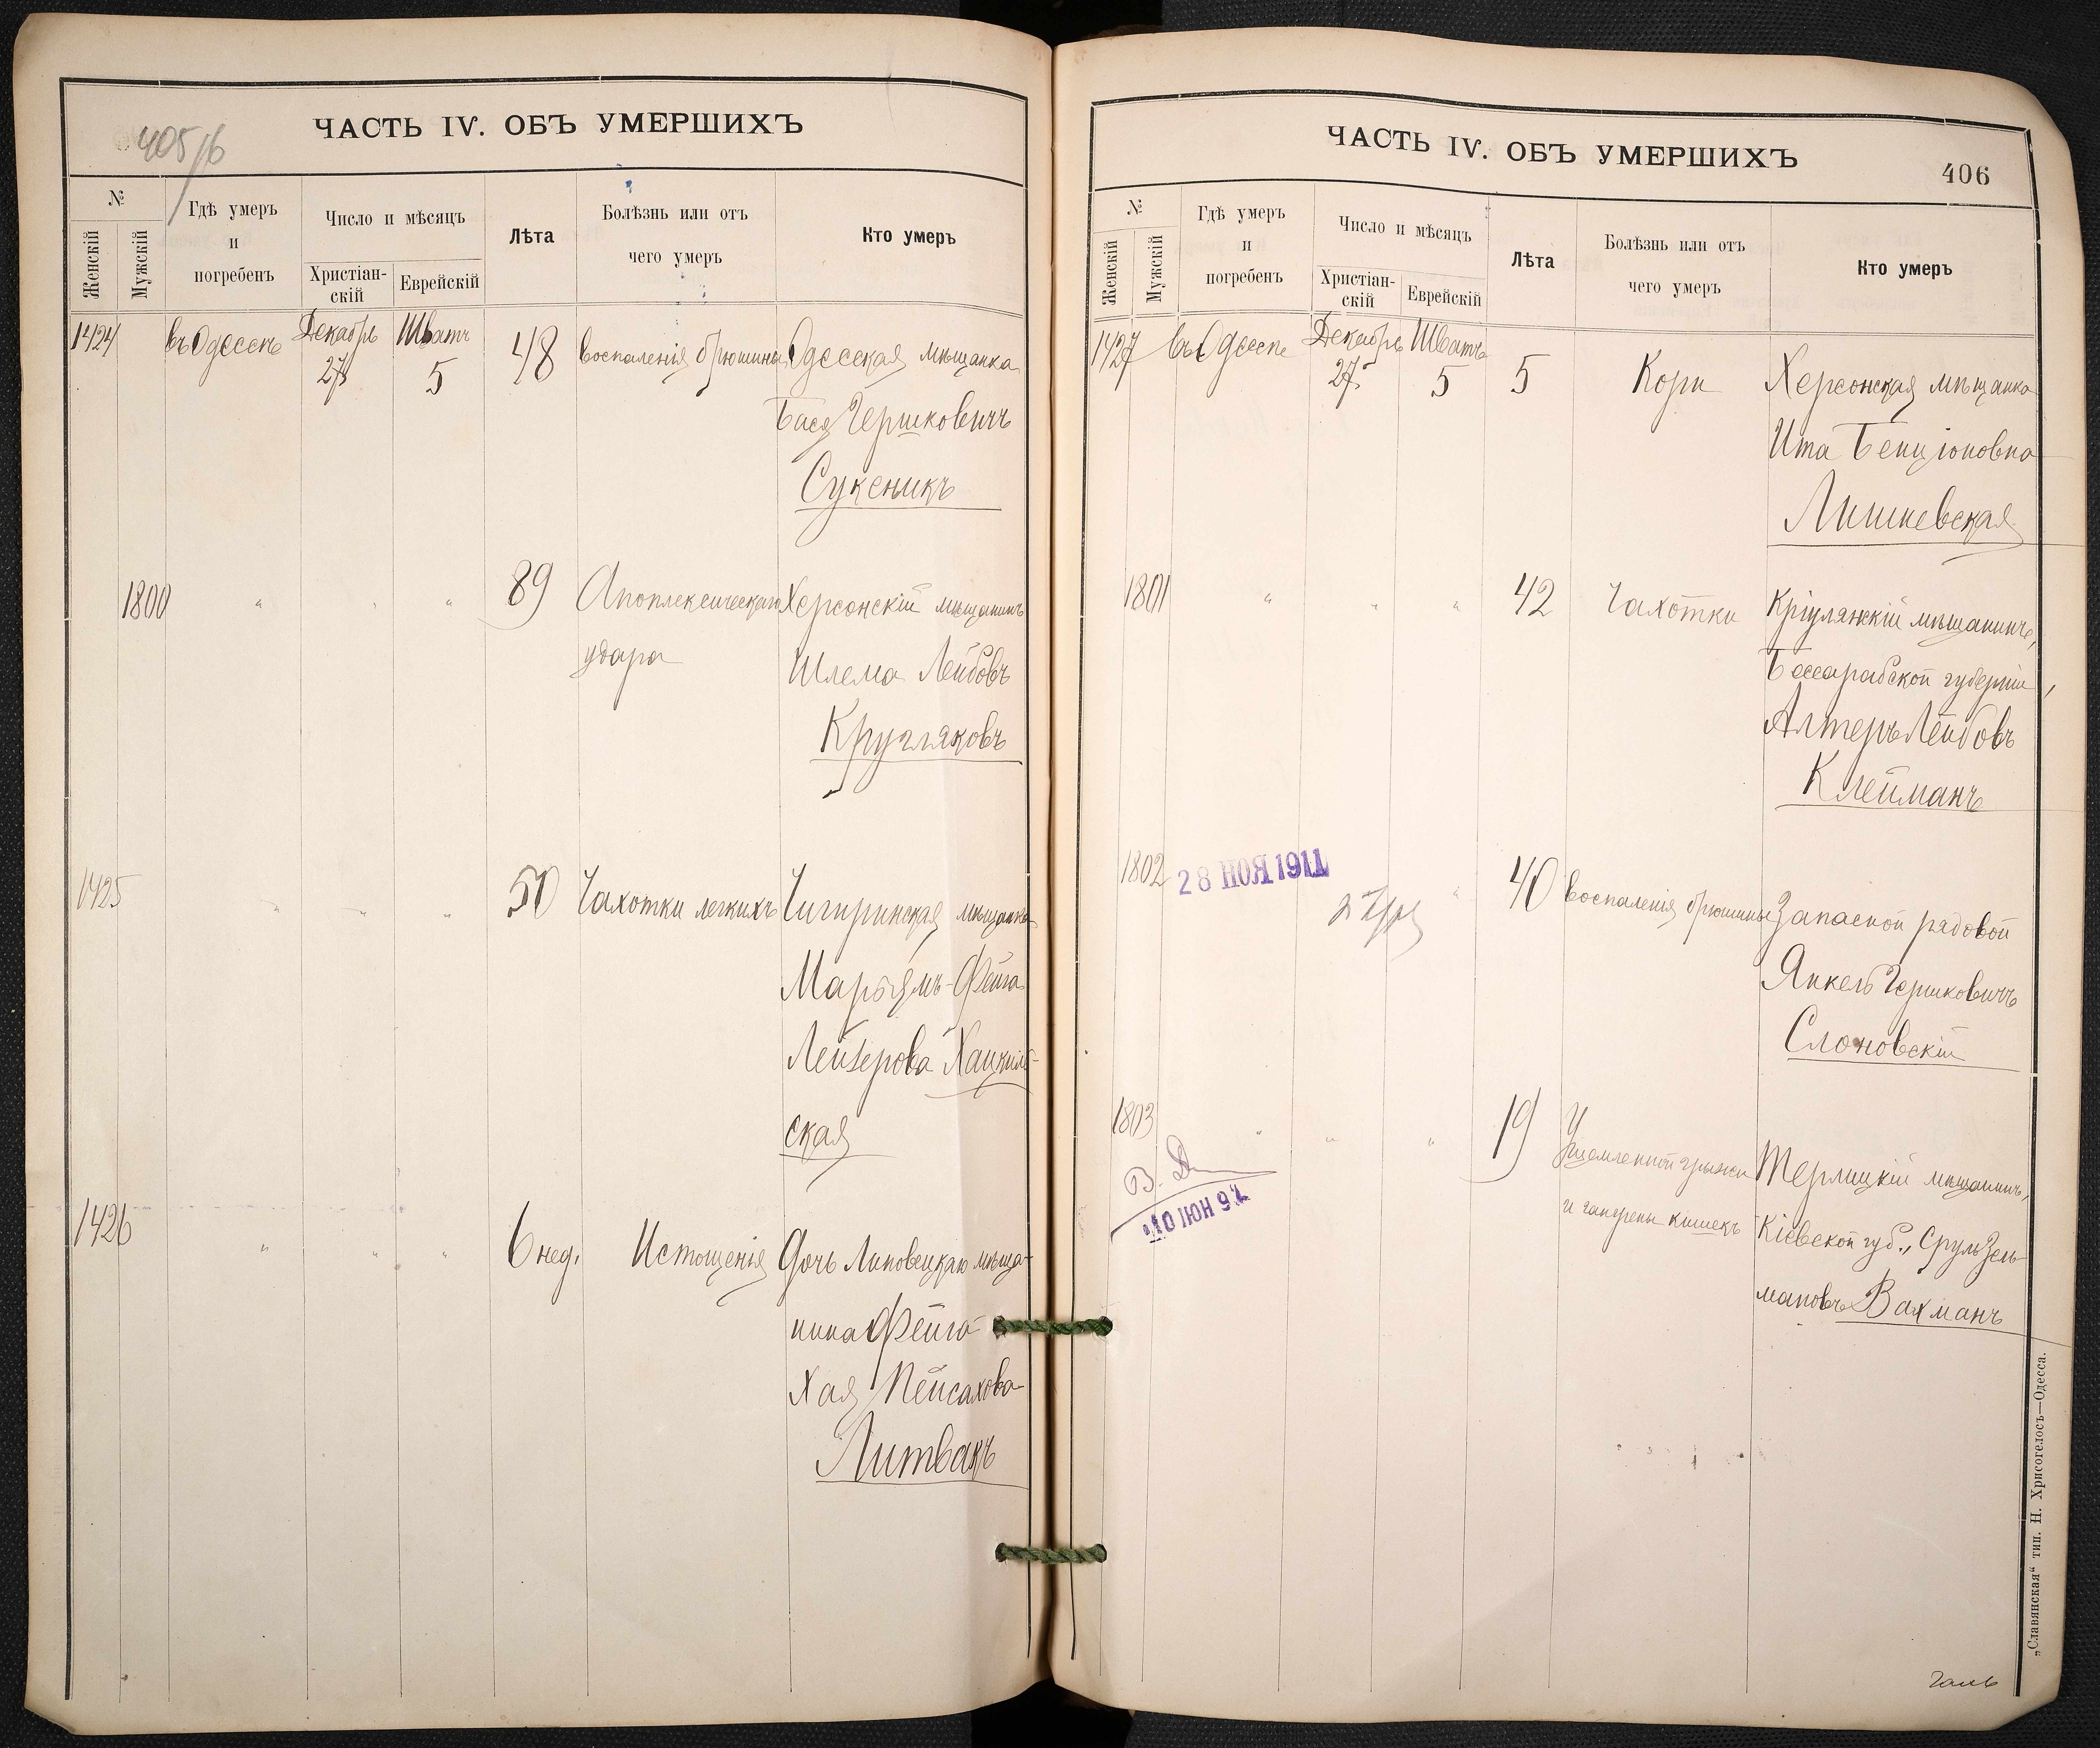 405/б
ЧАСТЬ IV. ОБЪ УМЕРШИХЪ
№
Женскій
Мужскій
Гдѣ умеръ
и
погребенъ
Число и мѣсяцъ
Христіан-
скій
Еврейскій
Лѣта
Болѣзнь или отъ
чего умеръ
Кто умеръ
1424 въ Одессѣ Декабрь Шватъ 48 воспаленія брюшины Одесская мѣщанка
27 5
Бася Гершковичъ
Сукеникъ
1800 " " " 89 Апоплексическаго Херсонскій мѣщанинъ
удара Шлема Лейбовъ
Кругляковъ
1425 " " " 50 Чахотки легкихъ Чигиринская мѣщанка
Марьямъ-Фейга
Лейзерова
ская
1426 " " " 6 нед. Истощенія Дочь Липовецкаго мѣща-
нина Фейга-
Хая Пейсахова
Литвакъ
ЧАСТЬ IV. ОБЪ УМЕРШИХЪ
406
№
Женскій
Мужскій
Гдѣ умеръ
и
погребенъ
Число и мѣсяцъ
Христіан-
скій
Еврейскій
Лѣта
Болѣзнь или отъ
чего умеръ
Кто умеръ
1427 въ Одессѣ Декабрь Шватъ
27 5 5 Кори Херсонская мѣщанка
Ита Бенціоновна
Лишневская
1801 " " " 42 Чахотки Кріулянскій мѣщанинъ,
Бессарабской губерніи,
Алтеръ Лейбовъ
Клейманъ
1802 28 НОЯ 1911 " 40 воспаленія брюшины Запасной рядовой
Янкель Гершковичъ
Слоновскій
1803 " " " 19 Ущемленной грыжи
и гангрены кишекъ
Терлицкій мѣщанинъ,
Кіевской губ., Сруль Зель-
мановъ Вахманъ
В. Д
10 ІЮН 97
„Славянская“ тип. Н. Хрисогелосъ—Одесса.